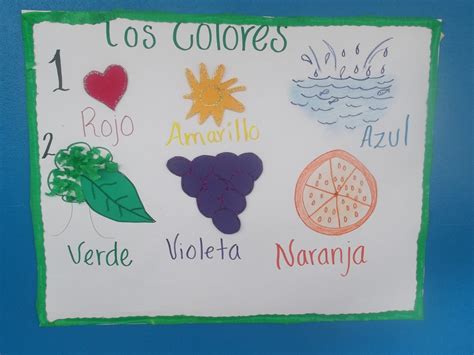 Los Colores
1
Rojo
Amarillo
Azul
2
Verde
Violeta
Naranja